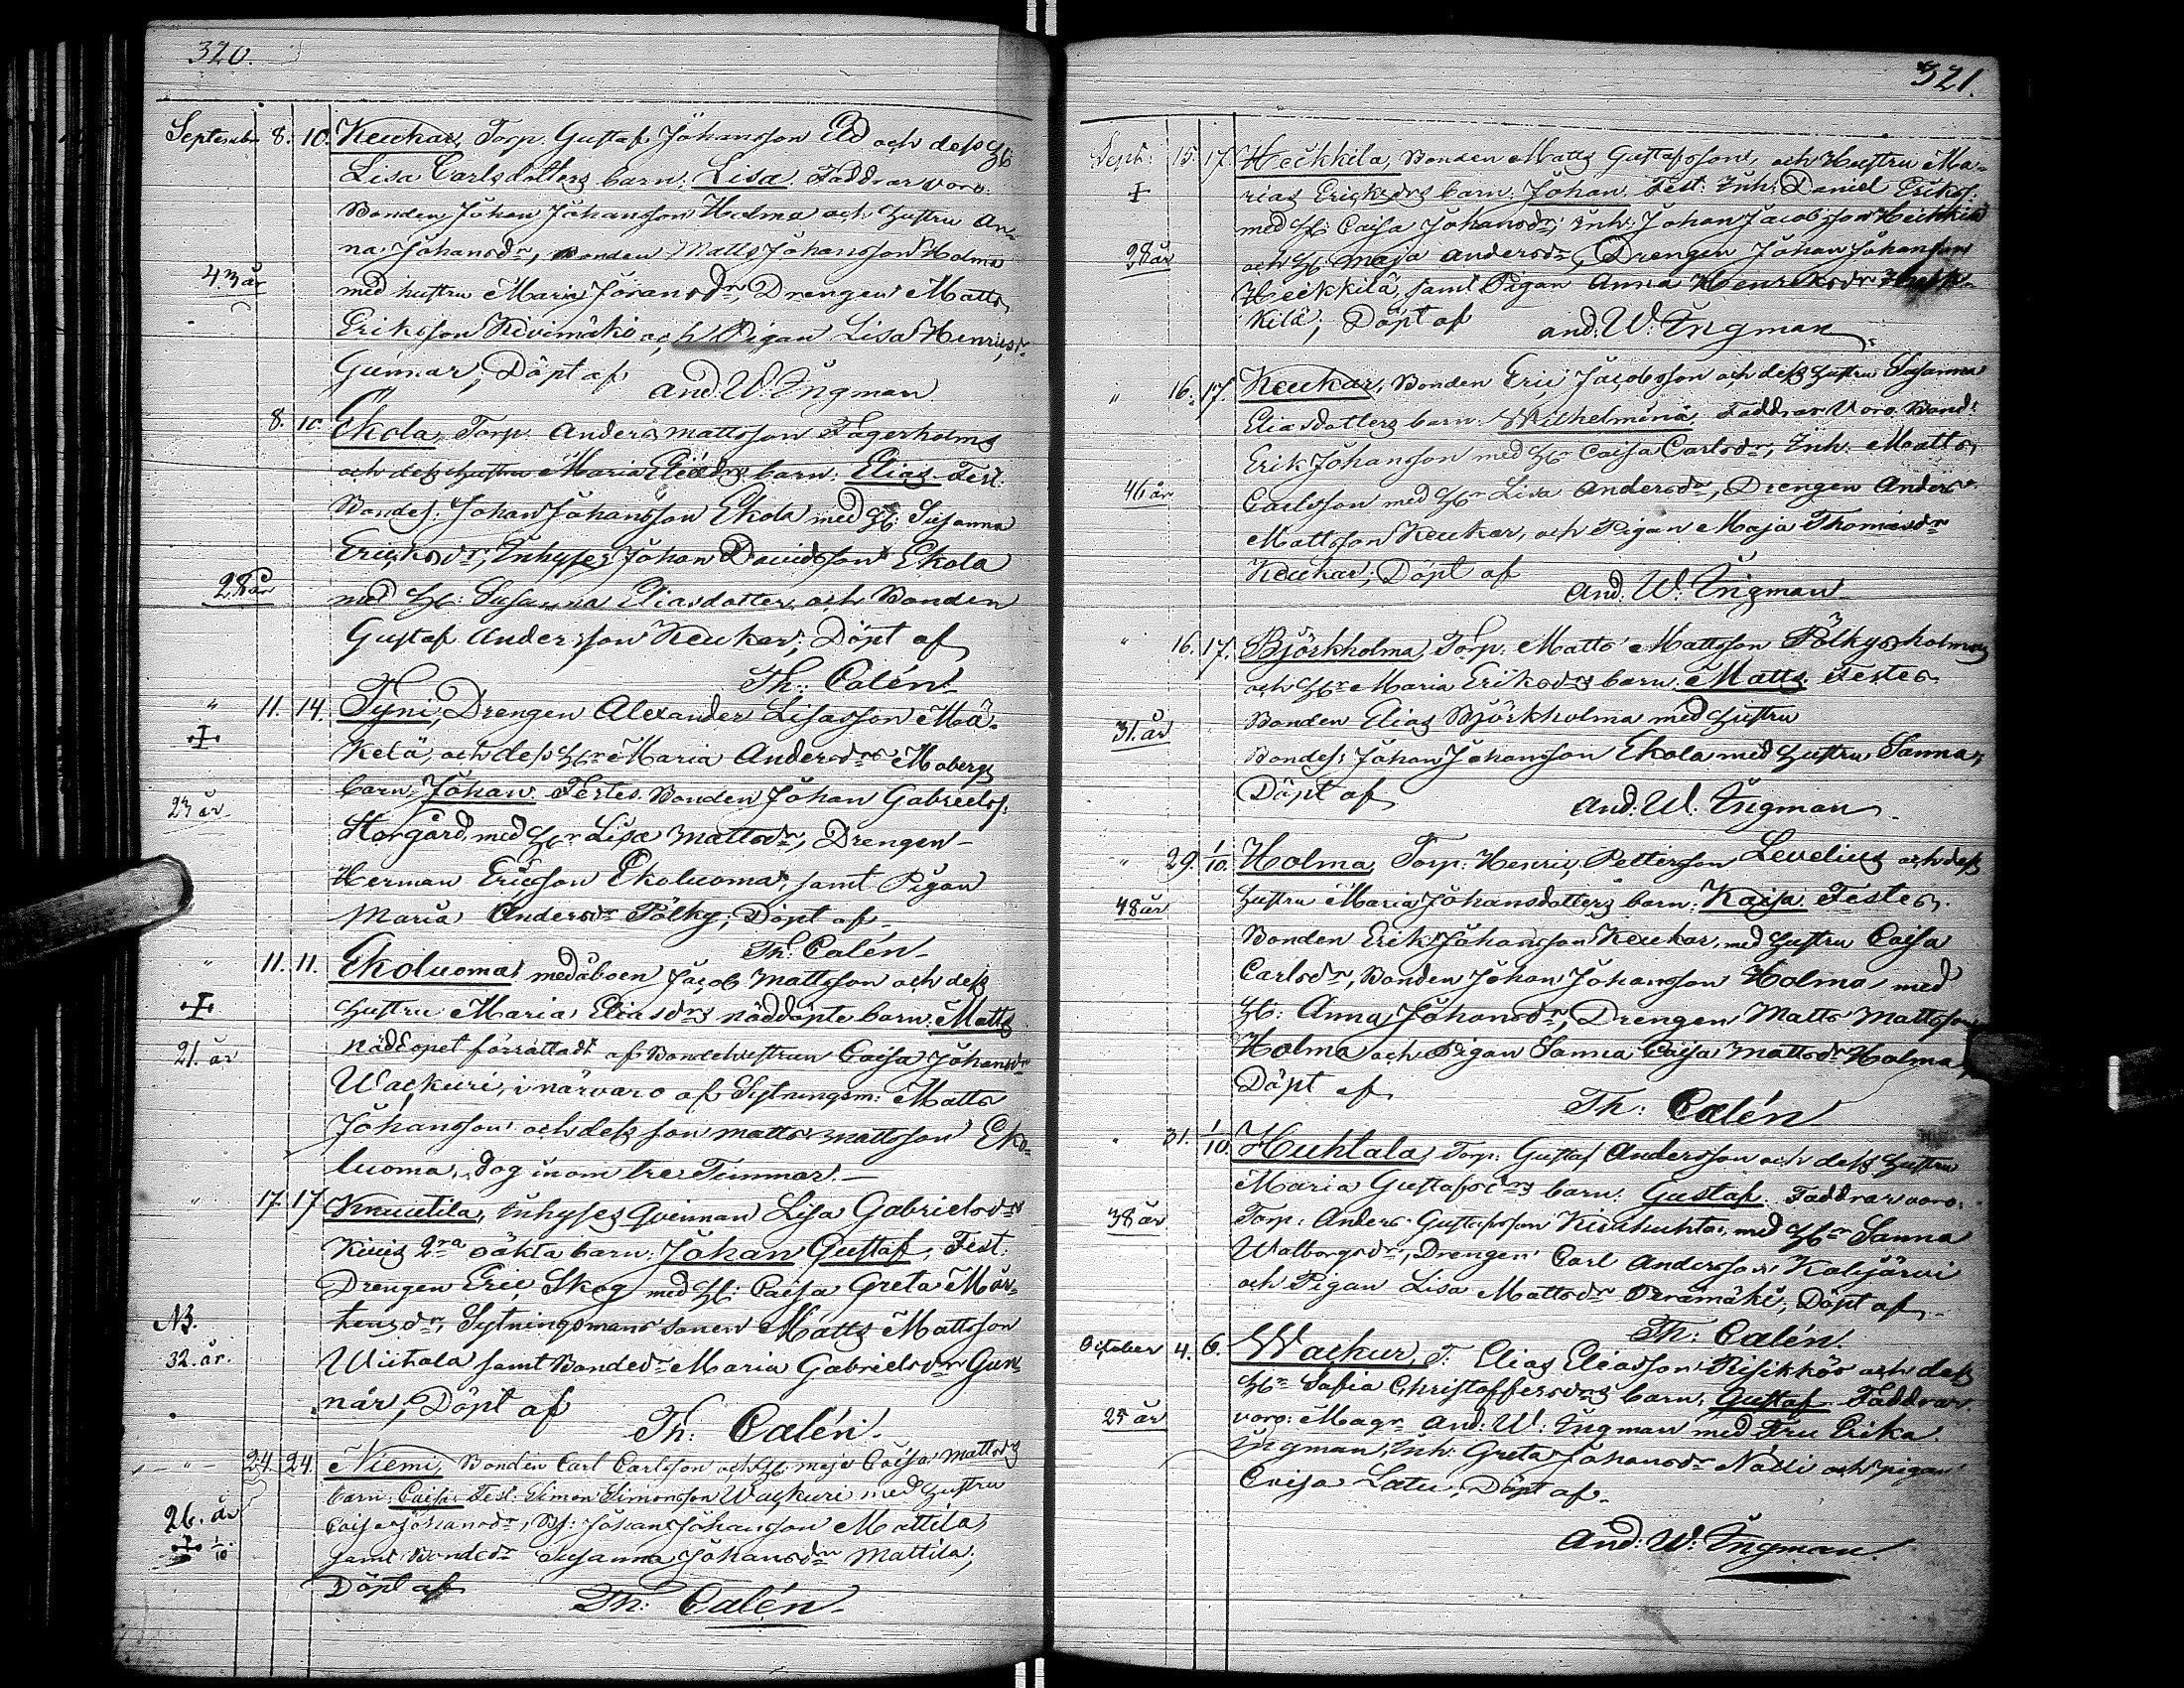 320.
September 8. 10. Keukar, Torp. Gustaf Johansson Ed och dess H:
Lisa Carlsdotters barn: Lisa. Faddrar voro:
Bonden Johan Johansson Holma och hustru An-
na Johansdr, Bonden Matts Johansson Holma
43 år
med hustru Maria Göransdr, Drengen Matts
Eriksson Kivimäki och Pigan Lisa Henricsdr
Gunnar, Döpt af And. W. Ingman
8. 10. Ekola, Torp. Anders Mattsson Fagerholms
och dess hustru Maria Eliædrs barn: Elias. Test.
Bondes. Johan Johansson Ekola med H: Susanna
Ericksdr, Inhyses Johan Davidsson Ekola
28 år
med H: Susanna Eliasdotter, och Bonden
Gustaf Andersson Keukar; Döpt af
Th: Calén.
" 11. 14. Tyni, Drengen Alexander Lisasson Mä-
kelä, och dess H:r Maria Andersdrs Moberg
barn: Johan. Testes. Bonden Johan Gabriels.
23 år
Storgård, med H:r Lisa Mattsdr, Drengen
Herman Ericsson Ekoluoma, samt Pigan
Maria Andersdr Pölky; Döpt af
Th: Calén.
" 11. 11. Ekoluoma, medåboen Jacob Mattsson och dess
hustru Maria Eliasdrs nöddöpte barn: Matts
Nöddopet förrättadt af Bondehustrun Caisa Johansdr
21. år
Wackuri, i närvaro af Sytningsm: Matts
Johansson och dess son Matts Mattsson Eko-
luoma, dog inom tre Timmar.
" 17. 17. Knuutila, Inhyses qvinnan Lisa Gabrielsdrs
Kiviz 2:ra oäkta barn: Johan Gustaf, Test:
Drengen Eric Skog med H: Caisa Greta Mår-
NB.
tensdr, Sytningsmans sonen Matts Mattsson
32. år.
Wiitala samt Bondedr Maria Gabrielsdr Gun-
nar; Döpt af Th: Calén.
" 24. 24. Niemi, Bonden Carl Carlsson och H: Maja Caisa Mattsdrs
barn: Caisa. Test: Simon Simonsson Wackuri med hustru
26. år
Caisa Johansdr, Bs: Johan Johansson Mattila,
1/10
samt Bondedr Susanna Johansdr Mattila;
Döpt af Th: Calén.
321.
Sept: 15. 17. Heikkilä, Bonden Matts Gustafsson, och Hustru Ma-
rias Ericksdrs barn: Johan. Test: Inh: Daniel Eriks.
med H: Caisa Johansdr, Inh: Johan Jacobsson Heikkilä
28 år
och H: Maja Andersdr, Drengen Johan Johansson
Heikkilä, samt Pigan Anna Henriksdr Heik-
kilä; Döpt af And. W. Ingman
" 16. 17. Keukar, Bonden Eric Jacobsson och dess hustru Susanna
Eliasdotters barn: Wilhelmina. Faddrar voro Bond:
Erik Johansson med H:r Caisa Carlsdr, Inh: Matts
46 år
Carlsson med H:r Lisa Andersdr, Drengen Anders
Mattsson Keukar, och Pigan Maja Thomasdr
Keukar; Döpt af And. W. Ingman
" 16. 17. Björkholma, Torp. Matts Mattsson Pölkysholmas
och H:r Maria Eriksdrs barn: Matts. Testes
Bonden Elias Björkholma med hustru
31. år
Bondes: Johan Johansson Ekola med hustru Sanna,
Döpt af And. W. Ingman
" 29. 1/10. Holma, Torp: Henric Pettersson Levelius och dess
hustru Maria Johansdotters barn: Kaisa. Testes.
48 år
Bonden Erik Johansson Keukar, med hustru Caisa
Carlsdr, Bonden Johan Johansson Holma, med
H: Anna Johansdr, Drengen Matts Mattsson
Holma och Pigan Sanna Caisa Mattsdr Holma,
Döpt af Th: Calén
" 31. 1/10. Huhtala, Torp: Gustaf Andersson och dess hustru
Maria Gustafsdrs barn: Gustaf. Faddrar voro:
38 år
Torp: Anders Gustafsson Kivihuhta, med H:r Sanna
Walborgsdr, Drengen Carl Andersson Kalijärvi
och Pigan Lisa Mattsdr Perämäki; Döpt af
Th: Calén.
October 4. 6. Wackur, T. Elias Eliasson Risikkös och dess
H:r Safia Christoffersdrs barn: Gustaf. Faddrar
25 år
voro: Magr And: W: Ingman med Fru Erika
Ingman, Inh: Greta Johansdr Nääli och pigan
Caisa Latu; Döpt af
And: W: Ingman.